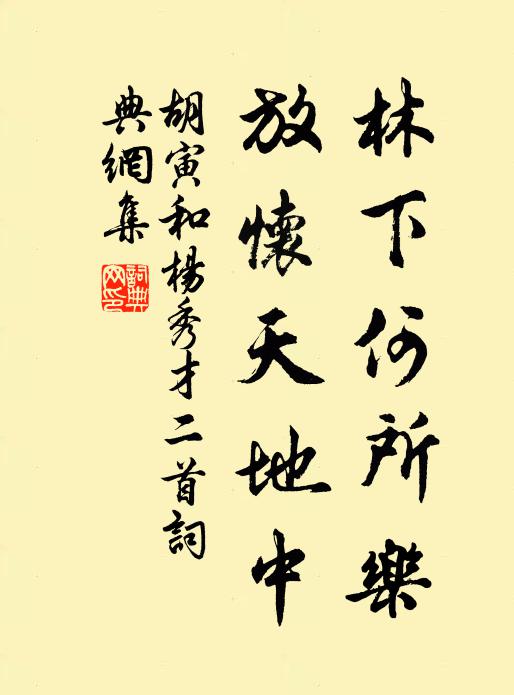 林下何所樂
放懷天地中
胡寅和楊秀才二首詞
典網集
詞典
网印